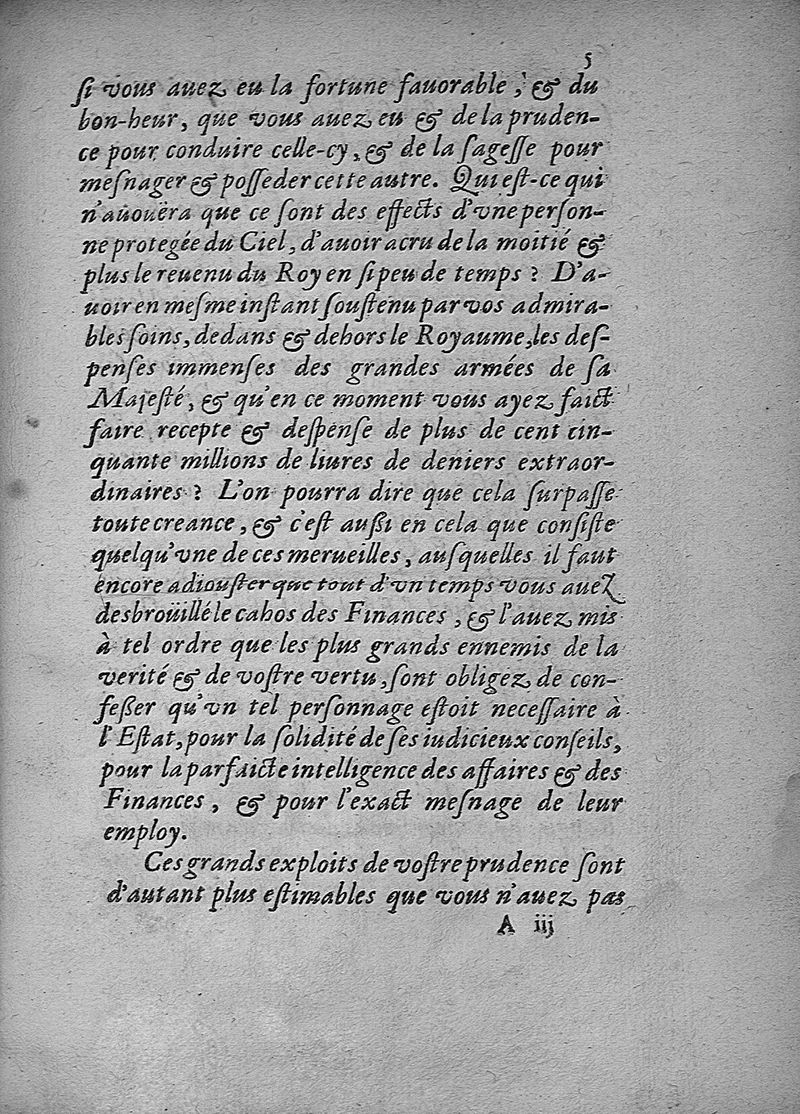 5
ſi vous auez eu la fortune fauorable, & du
bon-heur, que vous auez eu & de la pruden-
ce pour conduire celle-cy, & de la ſageſſe pour
meſnager & poſſeder cette autre. Qui eſt-ce qui
n'auouëra que ce ſont des effects d'vne perſon-
ne protegée du Ciel, d'auoir acru de la moitié &
plus le reuenu du Roy en ſi peu de temps ? D'a-
uoir en meſme inſtant ſouſtenu par vos admira-
bles ſoins, dedans & dehors le Royaume, les deſ-
penſes immenſes des grandes armées de ſa
Majeſté, & qu'en ce moment vous ayez faict
faire recepte & deſpenſe de plus de cent cin-
quante millions de liures de deniers extraor-
dinaires ? L'on pourra dire que cela ſurpaſſe
toute creance, & c'eſt außi en cela que conſiſte
quelqu'vne de ces merueilles, auſquelles il faut
encore adiouſter que tout d'vn temps vous auez
desbroüillé le cahos des Finances, & l'auez mis
à tel ordre que les plus grands ennemis de la
verité & de voſtre vertu, ſont obligez de con-
feßer qu'vn tel perſonnage eſtoit neceſſaire à
l'Eſtat, pour la ſolidité de ſes iudicieux conſeils,
pour la parfaicte intelligence des affaires & des
Finances, & pour l'exact meſnage de leur
employ.
Ces grands exploits de voſtre prudence ſont
d'autant plus eſtimables que vous n'auez pas
A iij